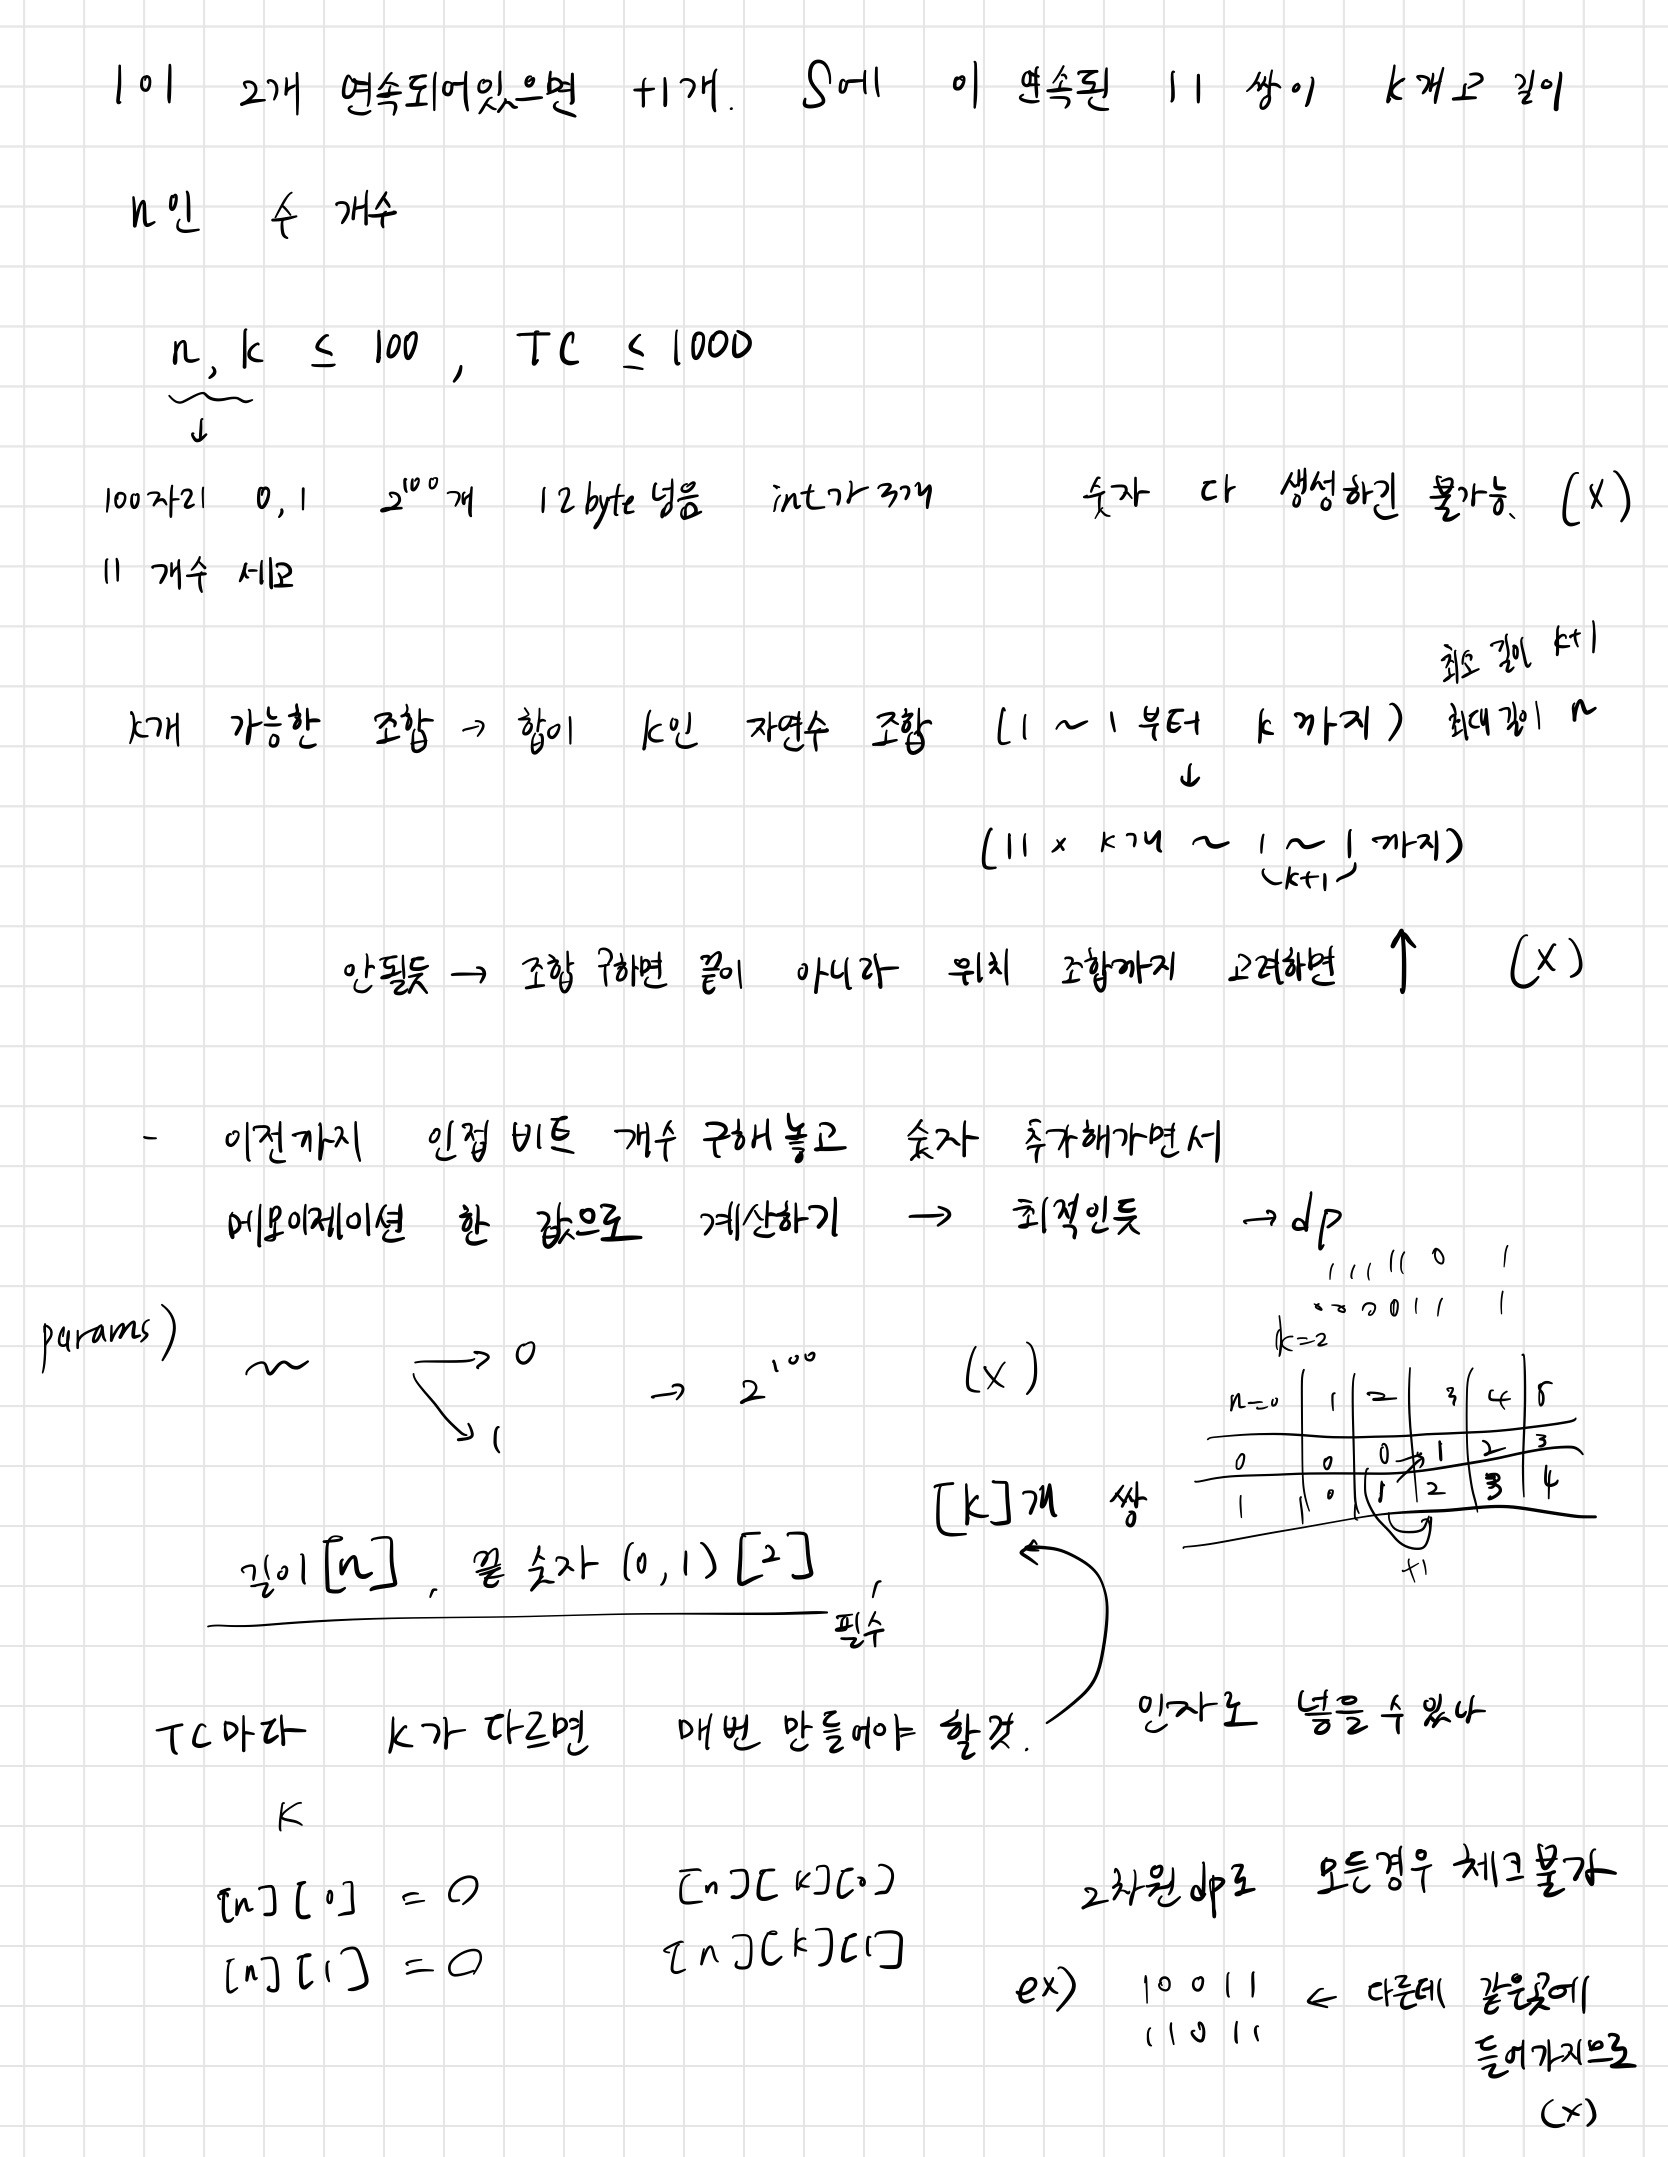 1이 2개 연속되어있으면 +1개. S에 이 연속된 11 쌍이 k개고 길이
n인 수 개수
n, k ≤ 100, TC ≤ 1000
↓
100자리 0,1 2^100개 12byte 넘음 int가 3개 숫자 다 생성하긴 불가능. (X)
11 개수 세고
최소 길이 k+1
k개 가능한 조합 → 합이 k인 자연수 조합 (1 ~ 1부터 k까지) 최대 길이 n
↓
(11 x k개 ~ 1 ~ 1 까지)
k+1
안될듯 → 조합 구하면 끝이 아니라 위치 조합까지 고려하면 ↑ (X)
- 이전까지 인접 비트 개수 구해놓고 숫자 추가해가면서
메모이제이션 한 값으로 계산하기 → 최적인듯 → dp
1 1 1 1 1 0 1
0 0 1 1 1
k=2
params) ~ → 0 → 2^100 (X)
↘ 1
n=0 | 1 | 2 | 3 | 4 | 5
0 0 0 1 2 3
1 0 1 2 3 4
+1
[k]개 쌍
길이[n], 끝 숫자 (0,1) [2]
필수
TC마다 k가 다르면 매번 만들어야 할것. 인자로 넣을 수 있나
K
[n][0] = 0 [n][k][0] 2차원 dp로 모든경우 체크불가
[n][1] = 0 [n][k][1]
ex) 10011 ← 다른데 같은곳에
11011 들어가지므로
(X)